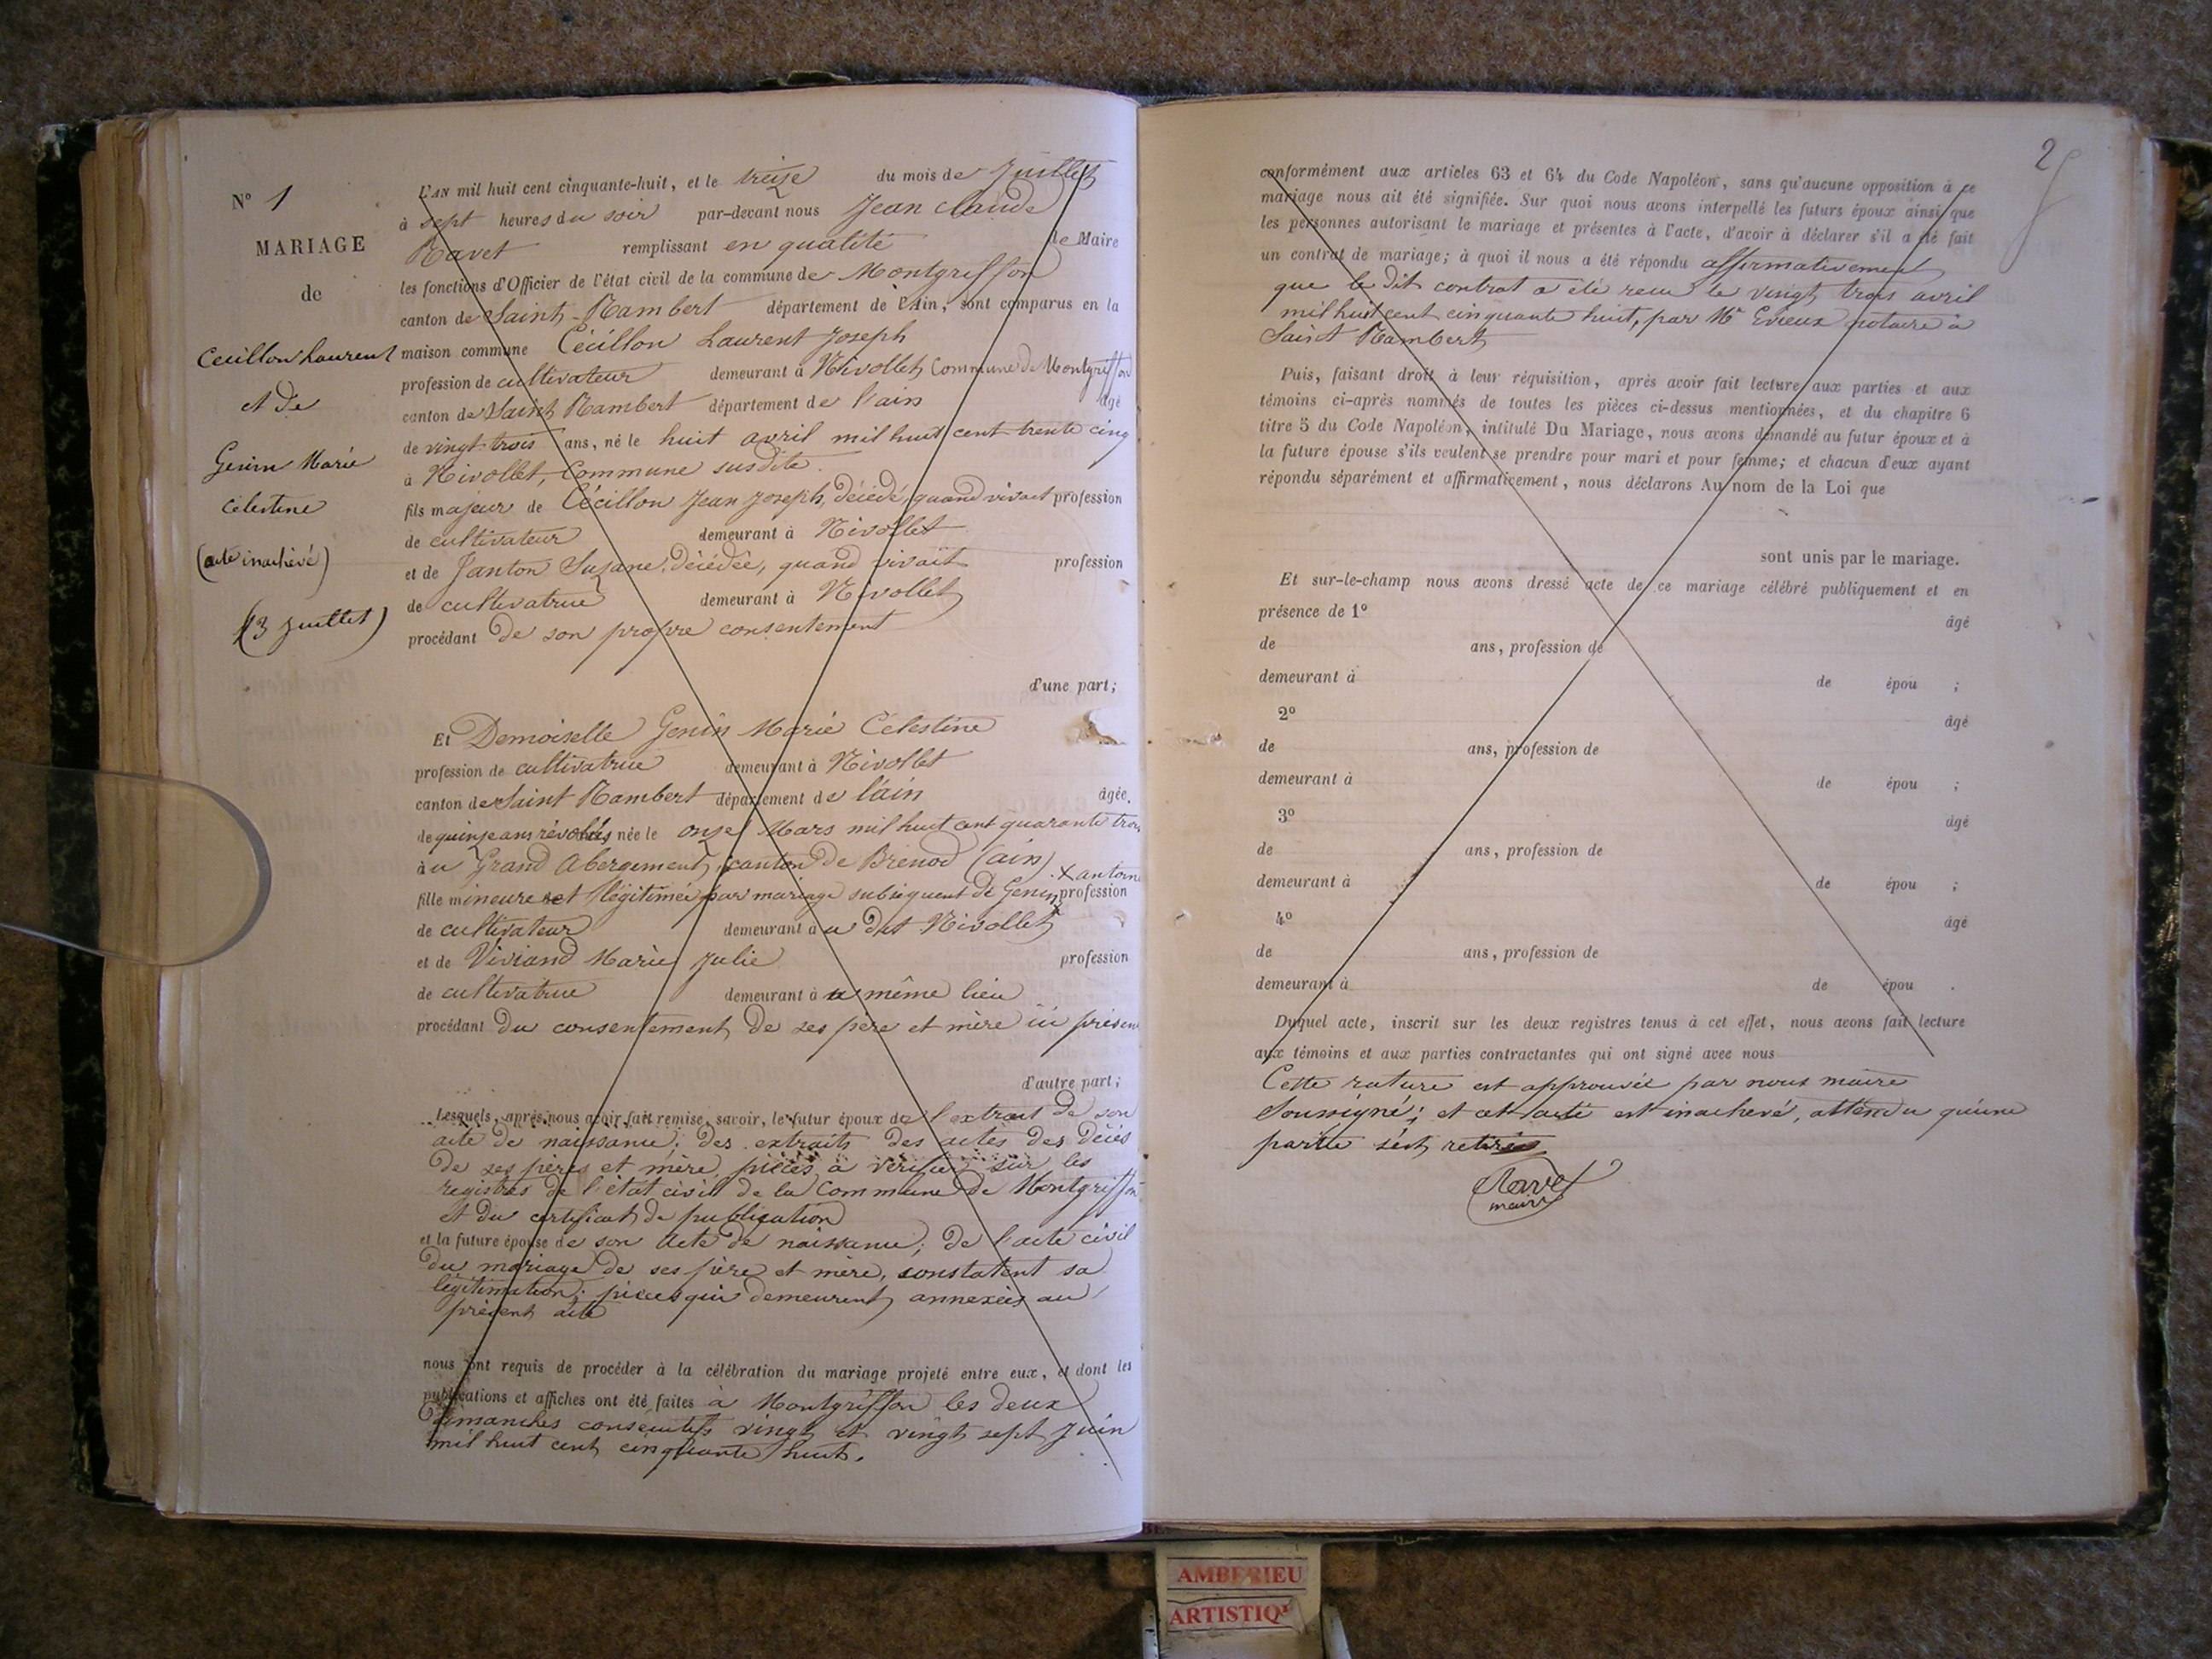 N° 1
MARIAGE
de
Cecillon Laurent
et de
Genin Marie
Célestine
(acte inachevé)
(13 juillet)
L'AN mil huit cent cinquante-huit, et le treize du mois de Juillet
à sept heures du soir par-devant nous Jean Claude
Ravet remplissant en qualité de Maire
les fonctions d'Officier de l'état civil de la commune de Montgriffon
canton de Saint-Rambert département de l'Ain, sont comparus en la
maison commune Cécillon Laurent Joseph
profession de cultivateur demeurant à Nivollet Commune de Montgriffon
canton de Saint Rambert département de l'ain âgé
de vingt-trois ans, né le huit avril mil huit cent trente cinq
à Nivollet, Commune susdite.
fils majeur de Cécillon Jean Joseph, décédé, quand vivait profession
de cultivateur demeurant à Nivollet
et de Janton Suzane, décédée, quand vivait profession
de cultivatrice demeurant à Nivollet
procédant de son propre consentement
d'une part;
Et Demoiselle Genin Marie Célestine
profession de cultivatrice demeurant à Nivollet
canton de Saint Rambert département de l'ain âgée
de quinze ans révolus née le onze Mars mil huit cent quarante trois
à u Grand Abergement, canton de Brenod (ain)
x antoine
fille mineure et légitimée par mariage subséquent de Genin x profession
de cultivateur demeurant à u dit Nivollet
et de Viviand Marie Julie profession
de cultivatrice demeurant à u même lieu
procédant du consentement de ses père et mère ici présen
d'autre part;
Lesquels, après nous avoir fait remise, savoir, le futur époux de l'extrait de son
acte de naissance; des extraits des actes des décés
de ses pères et mère, pièces à vérifier sur les
registres de l'état civil de la Commune de Montgriffon
et du certificat de publication
et la future épouse de son acte de naissance; de l'acte civil
du mariage de ses père et mère, constatent sa
légitimation; pièces qui demeurent annexées au
présent acte
nous ont requis de procéder à la célébration du mariage projeté entre eux, et dont les
publications et affiches ont été faites à Montgriffon les deux
dimanches consécutifs vingt et vingt sept Juin
mil huit cent cinquante huit.
2
conformément aux articles 63 et 64 du Code Napoléon, sans qu'aucune opposition à ce
mariage nous ait été signifiée. Sur quoi nous avons interpellé les futurs époux ainsi que
les personnes autorisant le mariage et présentes à l'acte, d'avoir à déclarer s'il a été fait
un contrat de mariage; à quoi il nous a été répondu affirmativement
que le dit contrat a été reçu le vingt trois avril
mil huit cent cinquante huit, par Me Evieux notaire à
Saint Rambert
Puis, faisant droit à leur réquisition, après avoir fait lecture aux parties et aux
témoins ci-après nommés de toutes les pièces ci-dessus mentionnées, et du chapitre 6
titre 5 du Code Napoléon, intitulé Du Mariage, nous avons demandé au futur époux et à
la future épouse s'ils veulent se prendre pour mari et pour femme; et chacun d'eux ayant
répondu séparément et affirmativement, nous déclarons Au nom de la Loi que
sont unis par le mariage.
Et sur-le-champ nous avons dressé acte de ce mariage célébré publiquement et en
présence de 1° âgé
de ans, profession de
demeurant à de épou ;
2° âgé
de ans, profession de
demeurant à de épou ;
3° âgé
de ans, profession de
demeurant à de épou ;
4° âgé
de ans, profession de
demeurant à de épou .
Duquel acte, inscrit sur les deux registres tenus à cet effet, nous avons fait lecture
aux témoins et aux parties contractantes qui ont signé avec nous
Cette rature est approuvée par nous maire
Soussigné; et cet acte est inachevé, attendu qu'une
partie s'est retirée
Ravet
maire
AMBERIEU
ARTISTIQ